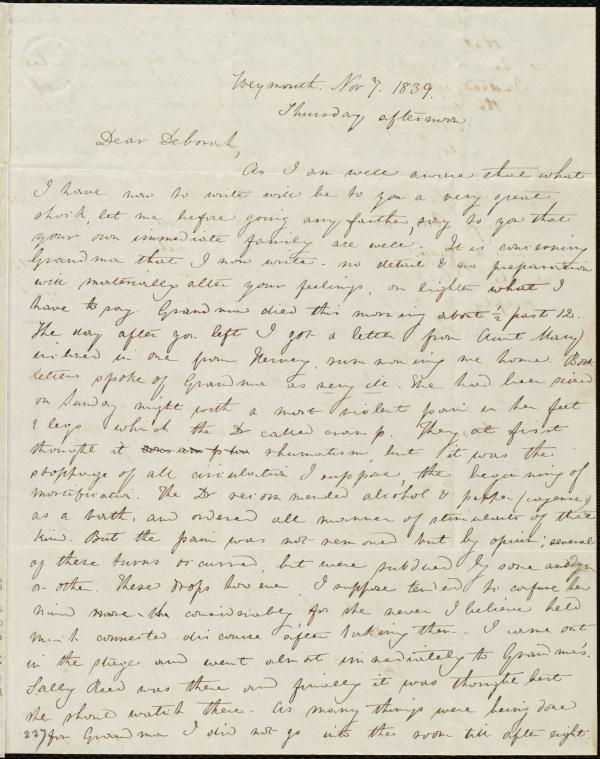 Weymouth. Nov 7. 1839.
Thursday afternoon
Dear Deborah,
As I am well aware that what
I have now to write will be to you a very great
shock, let me before going any farther, say to you that
your own immediate family are well. It is concerning
Grandma that I now write - no detail & no preparation
will materially alter your feelings, or lighten what I
have to say. Grandma died this morning about ½ past 12.
The day after you left I got a letter from Aunt Mary
inclosed in one from Hervey, summoning me home. Both
letters spoke of Grandma as very ill. She had been seized
on Sunday night with a most violent pain in her feet
& legs which the Dr called cramp. They at first
thought it rhumatism, but it was the
stoppage of all circulation I suppose, the beginning of
mortification. The Dr recommended alcohol & pepper (cayenne)
as a bath, and ordered all manner of stimulants of that
kind. But the pain was not removed but by opium; several
of these turns occurred, but were subdued by some anodyne
or other. These drops however, I suppose tended to confuse her
mind considerably, for she never I believe held
much connected discourse after taking them. I came out
in the stage and went almost immediately to Grandma's.
Sally Reed was there and finally it was thought best
she should watch there. As many things were being done
227 for Grandma I did not go into the room till after eight.